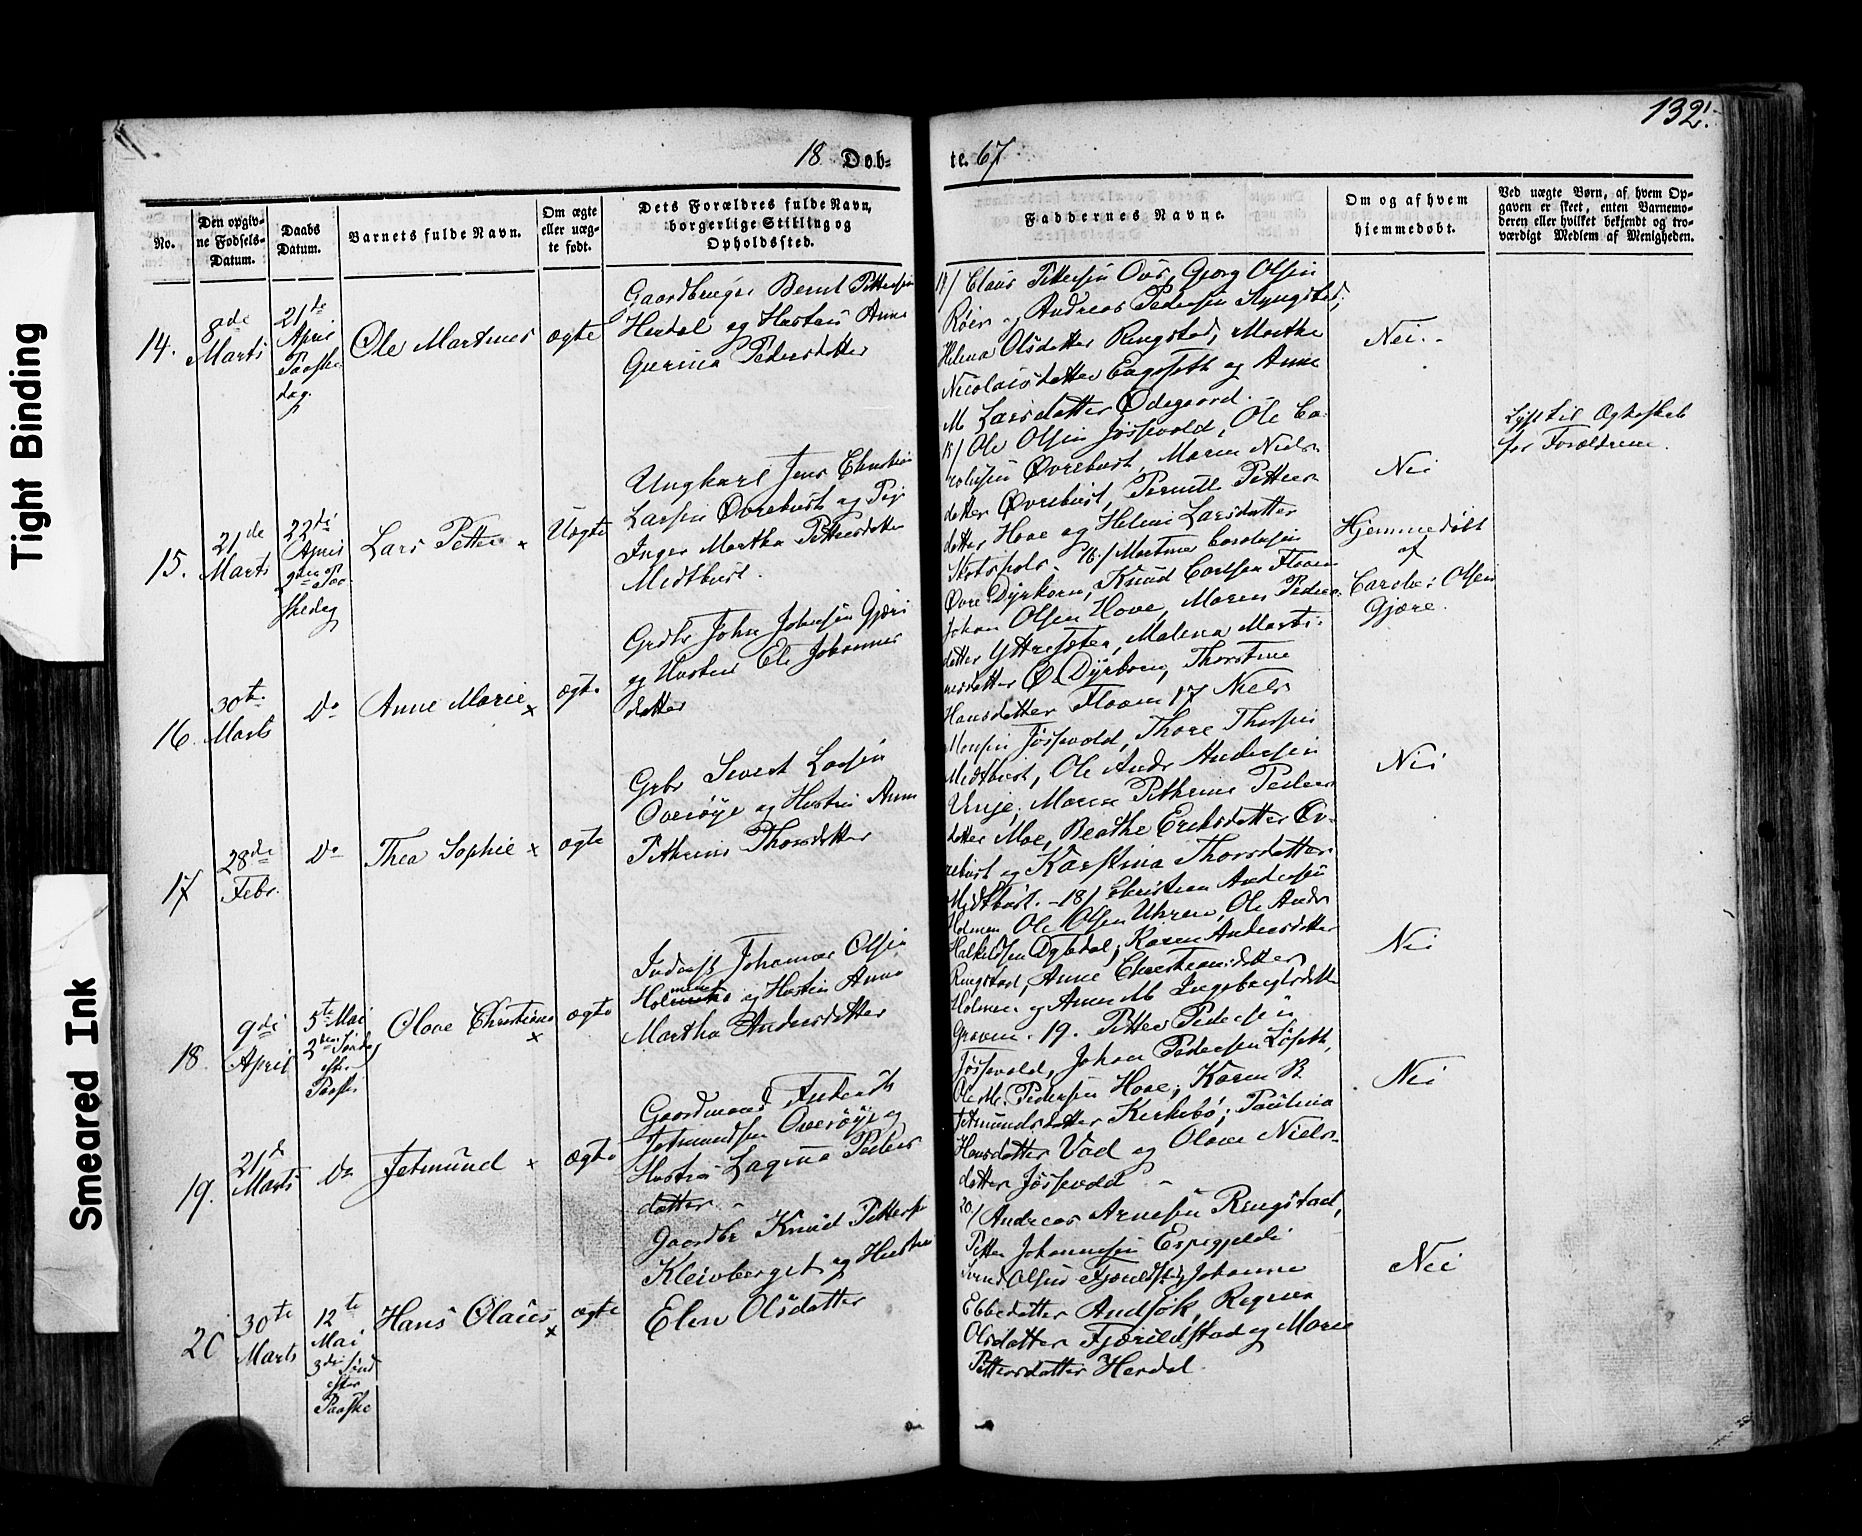 132.
18 Døb-
te. 67
No.
Den opgiv-
ne Fødsels-
Datum.
Daabs
Datum.
Barnets fulde Navn.
Om ægte
eller uæg-
te født.
Dets Forældres fulde Navn,
borgerlige Stilling og
Opholdssted.
Faddernes Navne.
Om og af hvem
hjemmedøbt.
Ved uægte Børn, af hvem Op-
gaven er skeet, enten Barnemo-
deren eller hvilket bekjendt og tro-
værdigt Medlem af Menigheden.
14.
8de
Marts
21de
April
Paaske
dag.
Ole Martinus
ægte
Gaardbruger Bernt Pettersen
Herdal og Hustru Anne
Gurina Pedersdatter
14/ Claus Pettersen Ous, Georg Olsen
Røen og Andreas Pedersen
Helena Olsdatter Ringstad, Marthe
Nicolaisdatter Engeseth og Anne
M. Larsdatter Ødegaard.
Nei.
15.
21de
Marts
22de
April
2den Paa-
skedag
Lars Petter x
Uægte
Ungkarl Jens Christian
Larsen Øvrebust og Pige
Inger Martha Pettersdatter
Midtbust.
15/ Ole Olsen Jøsevold, Ole Ca-
rolusen Øvrebust, Maren Niels-
datter Øvrebust, Pernille Petters-
datter Hove og Helene Larsdatter
Nei
Lyst til Ægteskab
for Forældrene.
16.
30te
Marts
Do
Anne Marie x
ægte
Grdbr John Johnsen Gjære
og Hustru Eli Johannes
datter
16/ Martinus Carolusen
Øvre Dyrkorn, Knud Carlsen Flaaen
Johan Olsen Hove, Maren Peders-
datter Yttresæter, Malena Marti-
nusdatter Ø. Dyrkorn, Thorstine
Hansdatter Flaaen
Hjemmedøbt
af
Carolus Olsen
Gjære.
17
28de
Febr.
Do
Thea Sophie x
ægte
Grbr Sivert Larsen
Overøye og Hustru Anne
Pethrine Thorsdatter
17 Niels
Monsen Jøsevold, Thore Thorsen
Midtbust, Ole Andr Andersen
Unje, Maren Pethrine Peders
datter Moe, Beathe Eriksdatter Øv-
rebust og Karstina Thorsdatter
Midtbust.
Nei
18.
9de
April
5te Mai
2den Søndag
efter
Paaske
Olave Christiane x
ægte
Inderst Johannes Olsen
Holmen og Hustru Anne
Martha Andersdatter
18/ Christian Andersen
Holmen, Ole Olsen Uhren, Ole Andr
Halkildsen Dybdal, Karen Andersdatter
Ringstad, Anne Christiansdatter
Holmen og Anne M. Ingebrigtsdatter
Graven.
Nei
19.
21de
Marts
Do
Jetmund x
ægte
Gaardmand Frederik
Jetmundsen Overøye og
Hustru Lagina Peders
datter. -
19. Petter Pedersen
Jøsevold, Johan Pedersen Løseth,
Ole M. Pedersen Hove, Karen B.
Jetmundsdatter Kirkebø, Paulina
Hansdatter Vad og Olave Niels-
datter Jøsevold -
Nei
20
30te
Marts
12te
Mai
3die Sønd
efter
Paaske
Hans Olaus x
ægte
Gaardbr Knud Petters
Kleivberget og Hustru
Elen Olsdatter
20/ Andreas Arnesen Ringstad,
Petter Johannesen Espegjelde
Svend Olsen Fjørildstad, Johanne
Ebbedatter Andsøk, Regine
Olsdatter Fjørildstad og Marie
Pettersdatter Herdal.
Nei
Tight Binding
Smeared Ink